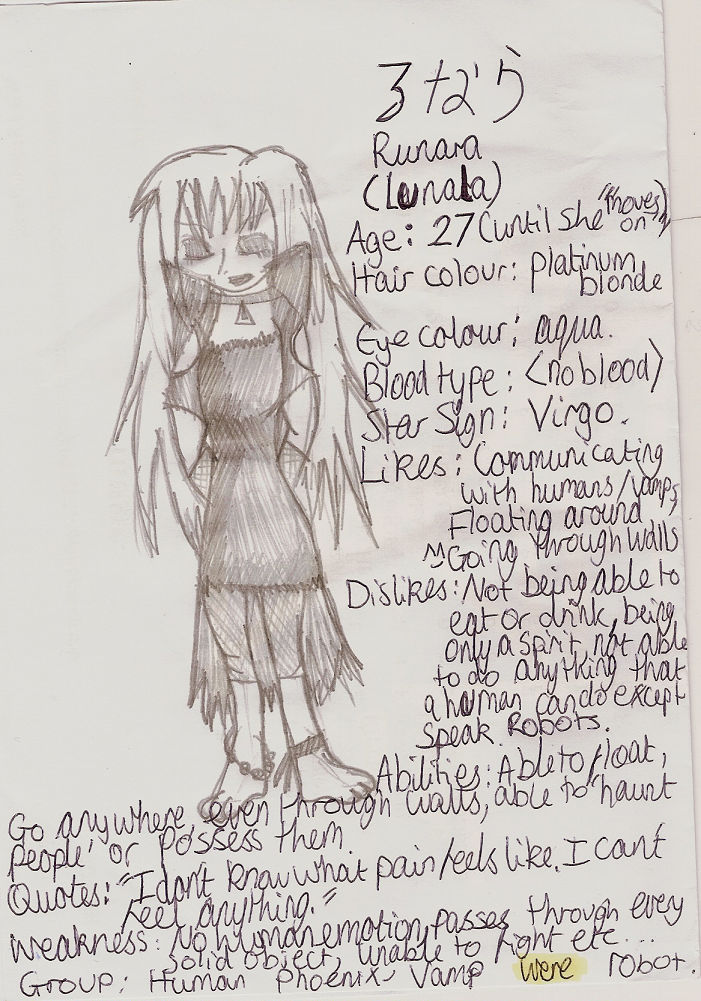 るなら
Runara
(Lunala)
Age: 27 (until she "moves on")
Hair colour: platinum
blonde
Eye colour: aqua.
Blood type: <no blood>
Star Sign: Virgo.
Likes: Communicating
with humans/vamps,
Floating around,
Going through walls
Dislikes: Not being able to
eat or drink, being
only a spirit, not able
to do anything that
a human can do except
speak. Robots.
Abilities: Able to float,
Go anywhere, even through walls, able to haunt
people or possess them.
Quotes: "I don't know what pain feels like. I can't
feel anything."
Weakness: No human emotion, passes through every
solid object, unable to fight etc...
Group: Human Phoenix Vamp were robot.